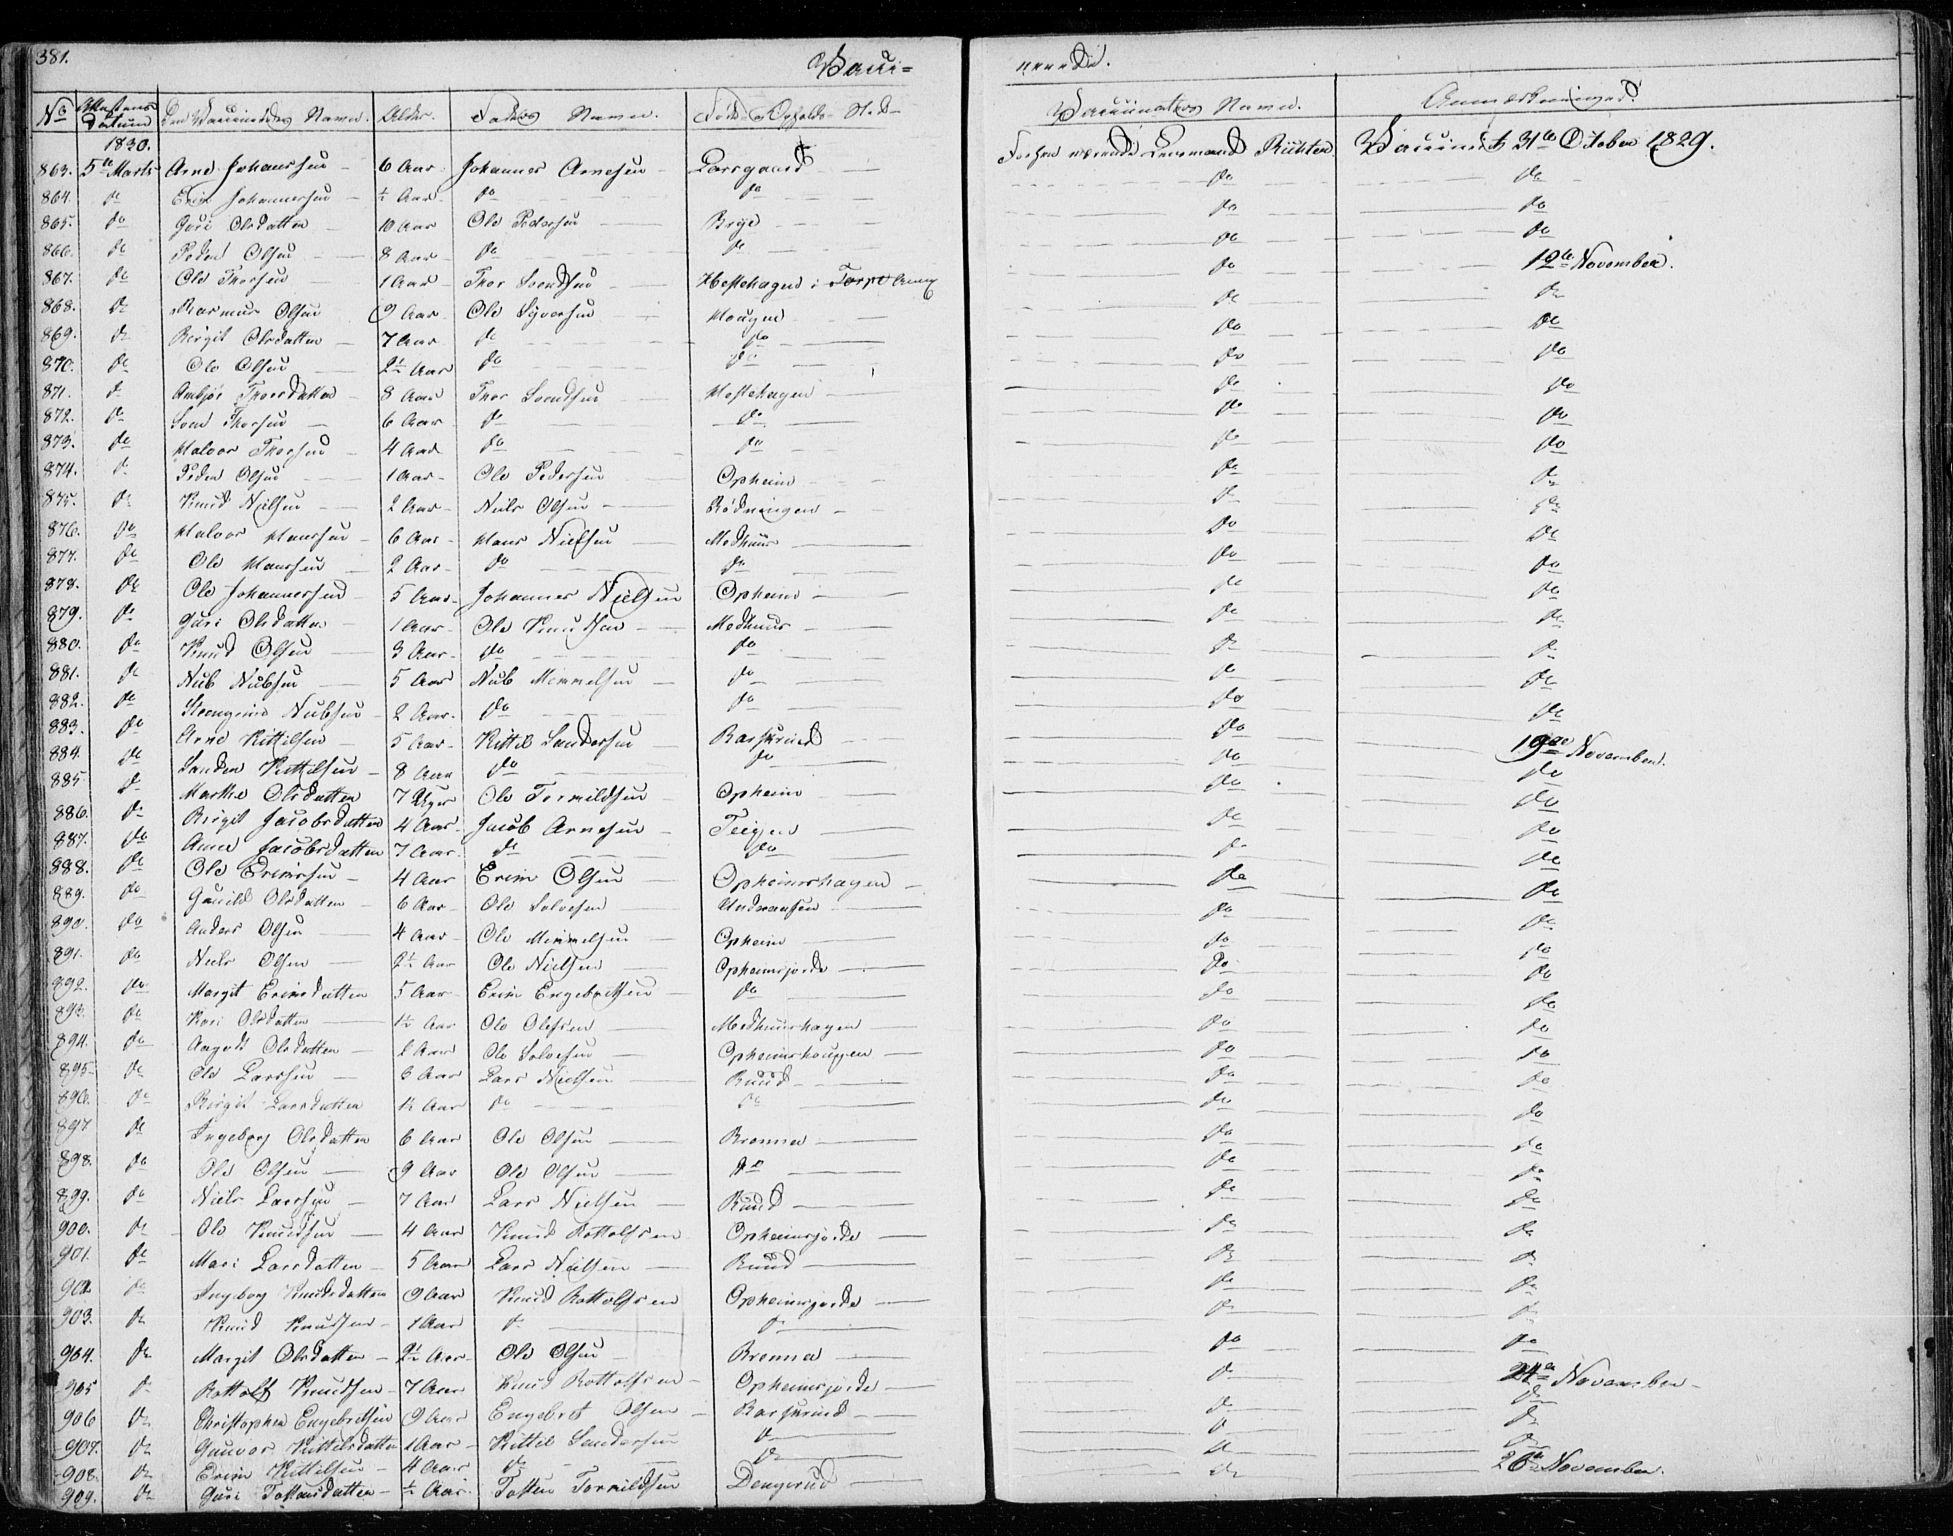 381. Vacci= nerede.
No Attestens Datum Den Vaccineredes Navn. Alder. Faders Navn. Føde- Opholds-Sted Vaccinateurs Navn. Anmærkninger.
1830.
863. 5te Marts Arne Johannesen 6 Aar Johannes Arnesen Larsgaard Lensmand Vaccineret 31te October 1829.
864. do Johannesen ½ Aar do do do do
865. do Guri Olsdatter 10 Aar Ole Pedersen Brye do do
866. do Peder Olsen 8 Aar do do do do
867. do Ole Thorsen 1 Aar Thor Svendsen Hestehagen i Torpe Annex do 12te November.
868. do Rasmus Olsen 9 Aar Ole Syversen Hougen do do
869. do Birgit Olsdatter 7 Aar do do do do
870. do Ole Olsen 2½ Aar do do do do
871. do Ambjør Thorsdatter 8 Aar Thor Svendsen Hestehagen do do
872. do Svend Thorsen 6 Aar do do do do
873. do Halvor Thorsen 4 Aar do do do do
874. do Peder Olsen 1 Aar Ole Pedersen Opheim do do
875. do Knud Nielsen 2 Aar Niels Olsen Rødningen do do
876. do Halvor Hansen 6 Aar Hans Nielsen Medhuus do do
877. do Ole Hansen 2 Aar do do do do
878. do Ole Johannesen 5 Aar Johannes Nielsen Opheim do do
879. do Guri Olsdatter 1 Aar Ole Knudsen Medhuus do do
880. do Knud Olsen 3 Aar do do do do
881. do Nub Nubsen 5 Aar Nub Himmelsen do do do
882. do Steengrim Nubsen 2 Aar do do do do
883. do Arne Kittilsen 5 Aar Kittil Sandersen Barskrind do 19de November.
884. do Sander Kittilsen 8 Aar do do do do
885 do Marthe Olsdatter 7 Uger Ole Tormildsen Opheim do do
886. do Birgit Jacobsdatter 4 Aar Jacob Arnesen Teigen do do
887. do Anne Jacobsdatter 7 Aar do do do do
888. do Ole Erimsen 4 Aar Erim Olsen Opheimshagen do do
889. do Gunild Olsdatter 6 Aar Ole Solvesen do do
890. do Anders Olsen 4 Aar Ole Himmelsen Opheim do do
891. do Niels Olsen 2½ Aar Ole Nielsen Opheimsjorde do do
892. do Margit Erimsdatter 5 Aar Erim Engebretsen do do do
893. do Kari Olsdatter 1½ Aar Ole Olesen Medhuushagen do do
894. do Aagodt Olsdatter Aar Ole Solvesen Opheimshougen do do
895 do Ole Larsen 3 Aar Lars Nielsen Ruud do do
896. do Birgit Larsdatter 1½ Aar do do do do
897 do Ingeborg Olsdatter 6 Aar Ole Olsen Brenna do do
898. do Ole Olsen 9 Aar Ole Olsen do do do
899. do Niels Larsen 7 Aar Lars Nielsen Ruud do do
900. do Ole Knudsen 4 Aar Knud Rottolfsen Opheimsjorde do do
901. do Mari Larsdatter 5 Aar Lars Nielsen Ruud do do
902 do Ingeborg Knudsdatter 9 Aar Knud Rottolfsen Opheimsjorde do do
903. do Knud Knudsen 1 Aar do do do do
904. do Margit Olsdatter 2½ Aar Ole Olsen Brenna do do
905 do Rottolf Knudsen 7 Aar Knud Rottolfsen Opheimsjorde do 24de November
906 do Christopher Engebretsen 9 Aar Engebret Olsen Barskrind do do
907. do Gunvor Kittilsdatter 1 Aar Kittil Sandersen do do do
908. do Erim Kittilsen 4 Aar do do do do
909. do Guri Tostensdatter ½ Aar Tosten Tormildsen Dengerud do 26de November.